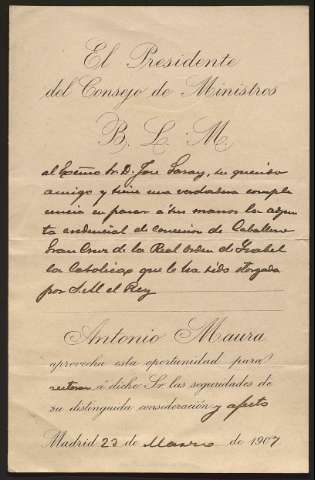 El Presidente
del Consejo de Ministros
B. L. M.
al Excmo Sr. D. José Garay, su querido
amigo y tiene una verdadera compla
cencia en pasar á sus manos la adjun
ta credencial de concesion de Caballero
Gran Cruz de la Real Orden de Isabel
la Catolica que le ha sido otorgada
por S. M. el Rey
Antonio Maura
aprovecha esta oportunidad para
reiterar á dicho Sr. las seguridades de
su distinguida consideración y afecto
Madrid 23 de Marzo de 1907